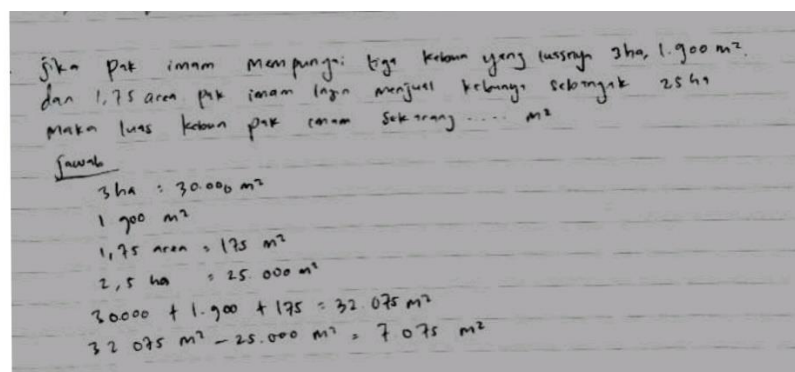 jika pak imam mempunyai tiga kebun yang luasnya 3ha, 1.900 m²
dan 1,75 area pak imam ingin menjual kebunnya sebanyak 25 ha
maka luas kebun pak imam sekarang ..... m²
Jawab
3 ha = 30.000 m²
1 900 m²
1,75 area = 175 m²
2,5 ha = 25.000 m²
30.000 + 1.900 + 175 = 32.075 m²
32 075 m² - 25.000 m² = 7 075 m²